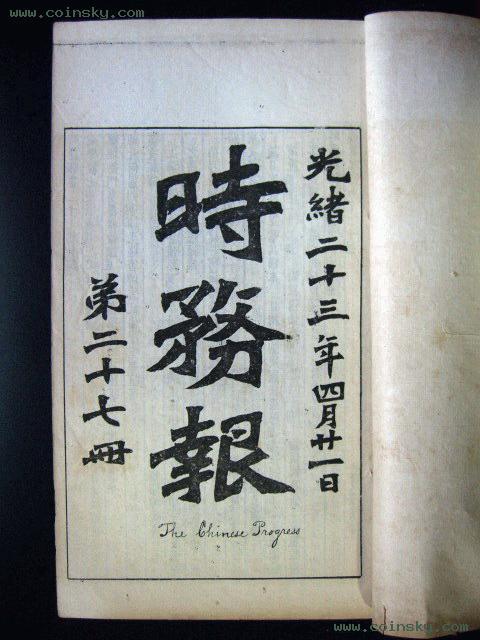 www.coinsky.com
www.coinsky.com
光緒二十三年四月廿一日
時務報
第二十七冊
The Chinese Progress
www.coinsky.com